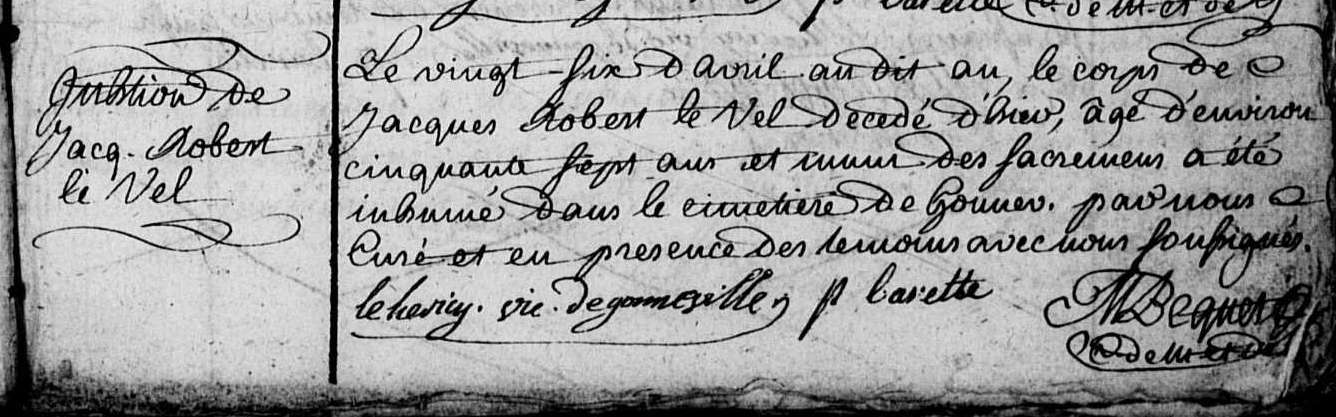 Inhumation de
Jacq. Robert
le Vel
Le vingt-six d'avril au dit an, le corps de
Jacques Robert le Vel decedé d'hier, âgé d'environ
cinquante sept ans et muni des sacremens a été
inhumé dans le cimetiere de Gonnev. par nous
Curé et en presence des temoins avec nous soussignés.
lehericy. vic. de gonneville p bavette
M Bequet